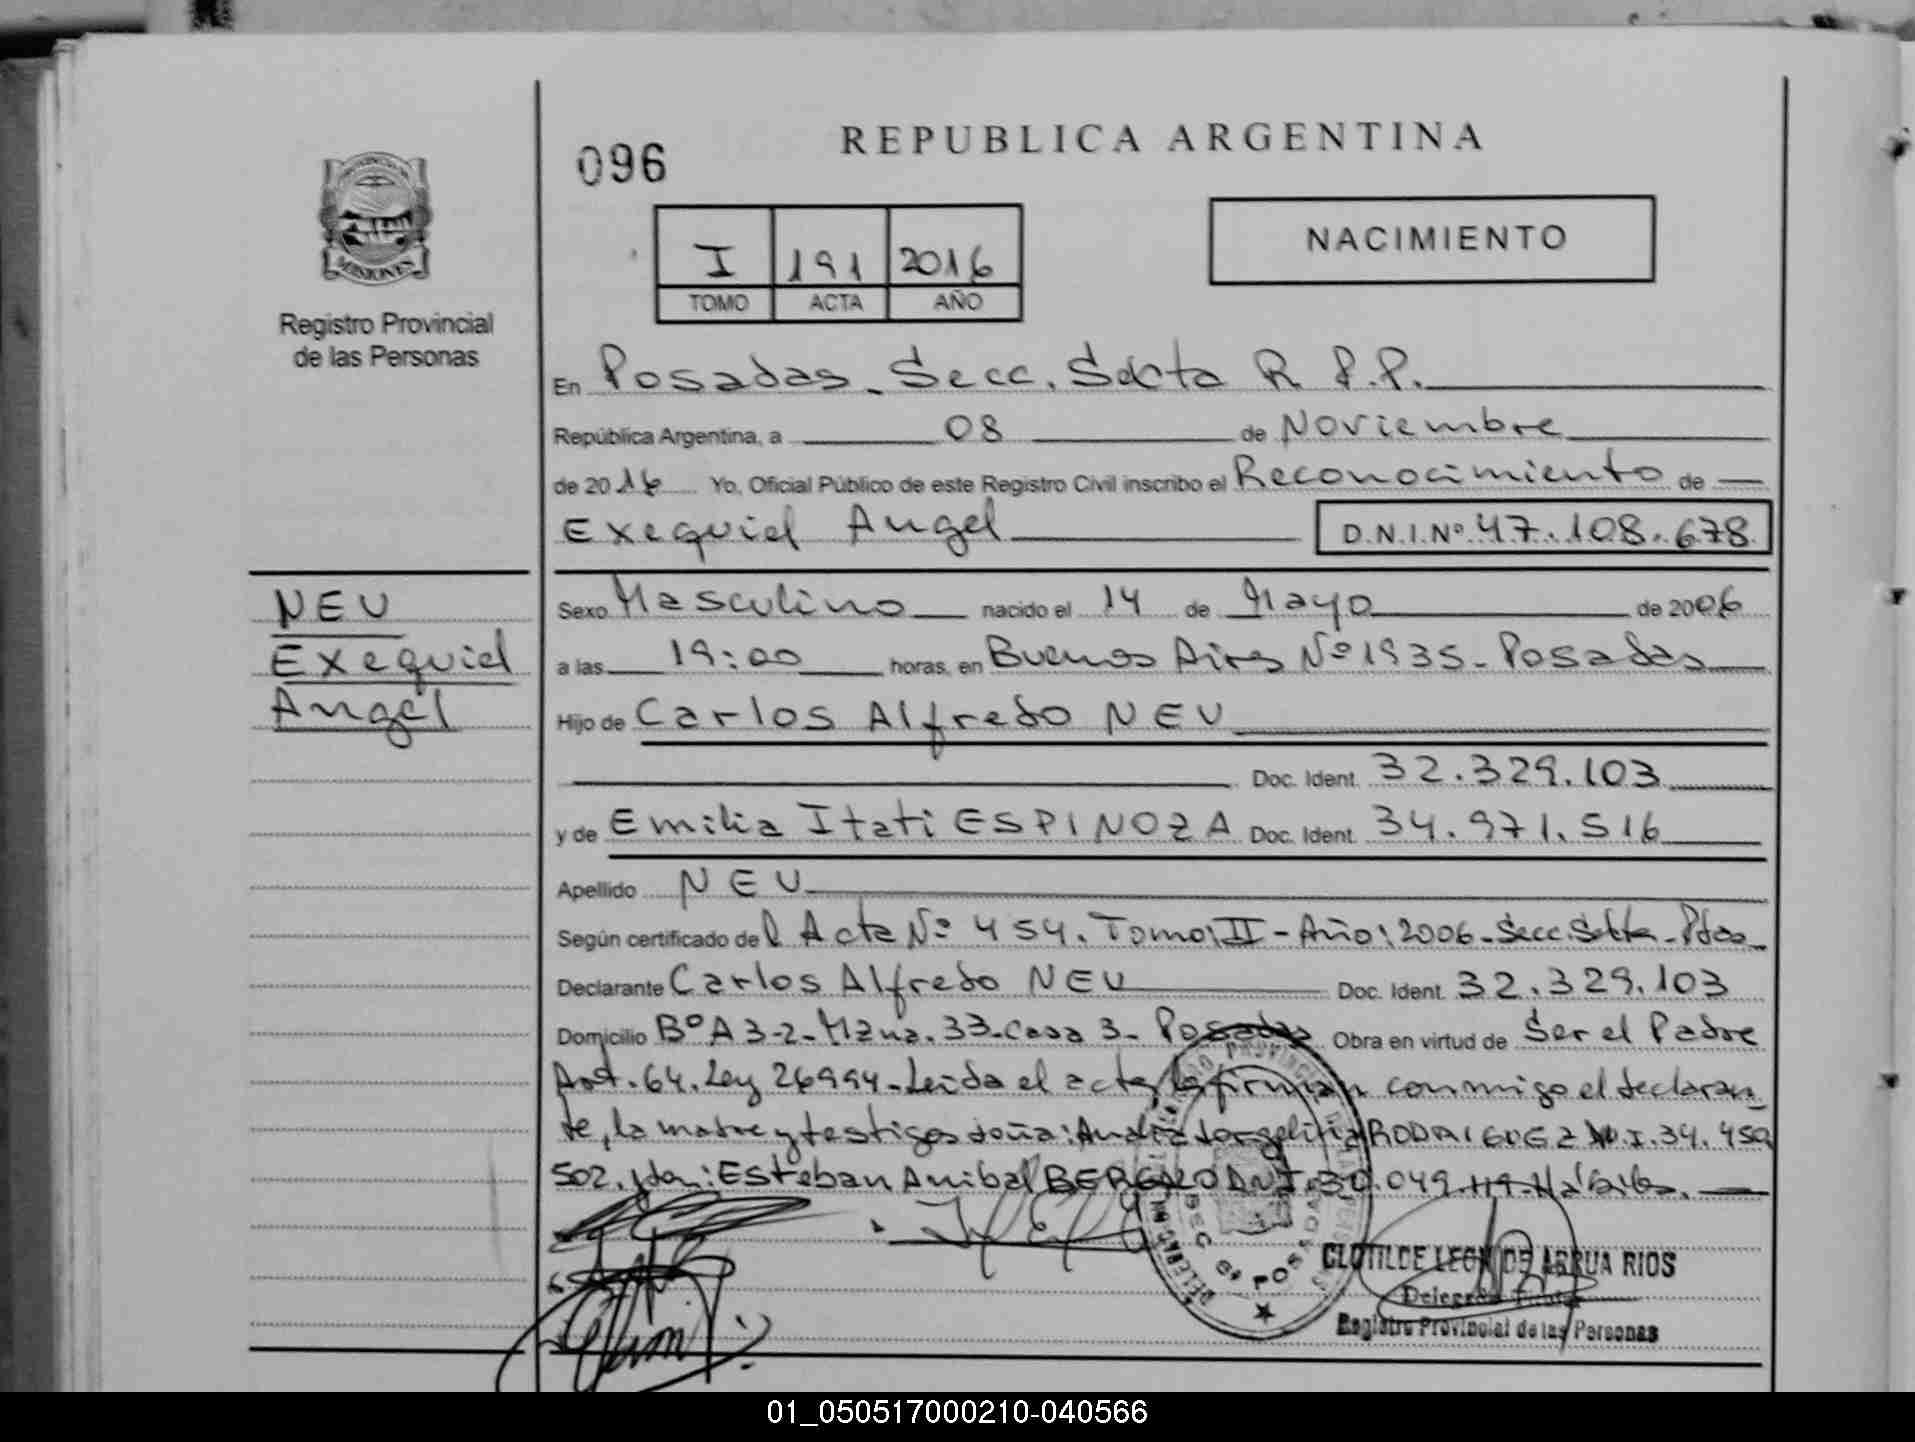 096
REPUBLICA ARGENTINA
NACIMIENTO
I 191 2016
TOMO ACTA AÑO
MISIONES
Registro Provincial
de las Personas
En Posadas - Secc. Sexta R P.P.
República Argentina, a 08 de Noviembre
de 2016 Yo, Oficial Público de este Registro Civil inscribo el Reconocimiento de
Exequiel Angel D.N.I.Nº 47.108.678
NEU
Exequiel
Angel
Sexo Masculino nacido el 14 de Mayo de 2006
a las 19:00 horas, en Buenos Aires Nº 1935 - Posadas
Hijo de Carlos Alfredo NEU
Doc. Ident. 32.329.103
y de Emilia Itati ESPINOZA Doc. Ident. 34.971.516
Apellido NEU
Según certificado del Acta Nº 454. Tomo: II - Año: 2006 - Secc. Sexta - Pdas
Declarante Carlos Alfredo NEU Doc. Ident. 32.329.103
Domicilio Bº A 3-2 - Mzna. 33 - Casa 3 - Posadas Obra en virtud de Ser el Padre
Art. 64. Ley 26994 - Leida el acta la firman conmigo el declaran
te, la madre y testigos doña: Analia RODRIGUEZ 34.450
502. y don: Esteban Anibal D.N.I. 30.049.119 - Hábiles.
CLOTILDE LEON DE ARRUA RIOS
Registro Provincial de las Personas
01_050517000210-040566